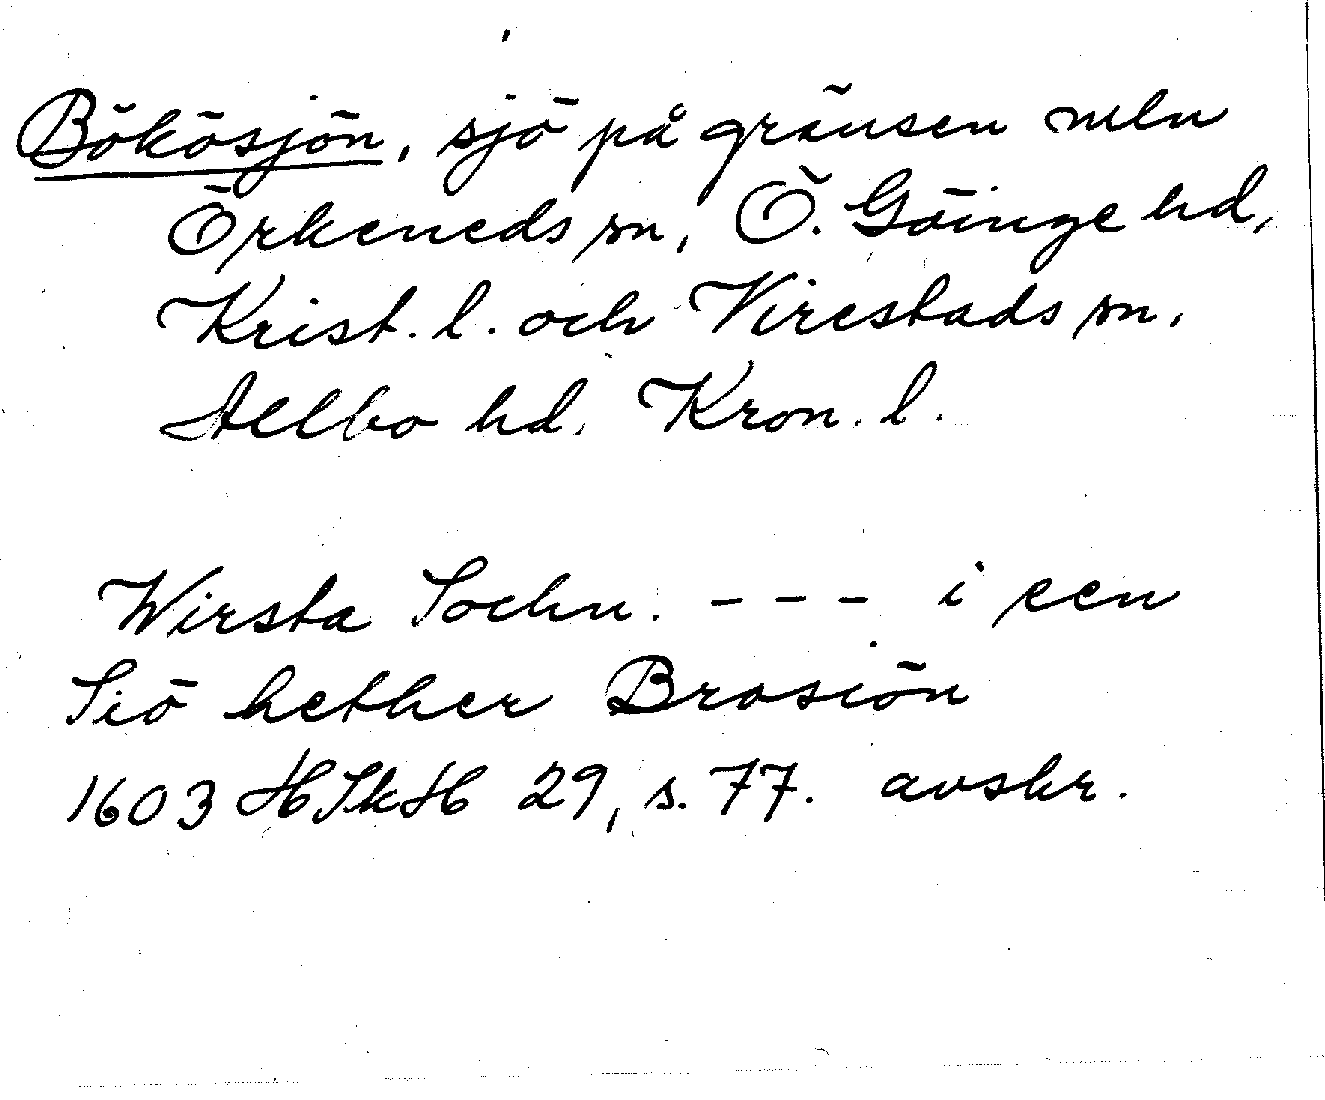 Bökösjön, sjö på gränsen meln
Örkeneds sn, Ö. Göinge hd,
Krist. l. och Virestads sn,
Allbo hd, Kron. l.
Wirsta Sochn. - - - i een
Siö hether Brosiön
1603 HSkH 29, s. 77. avskr.